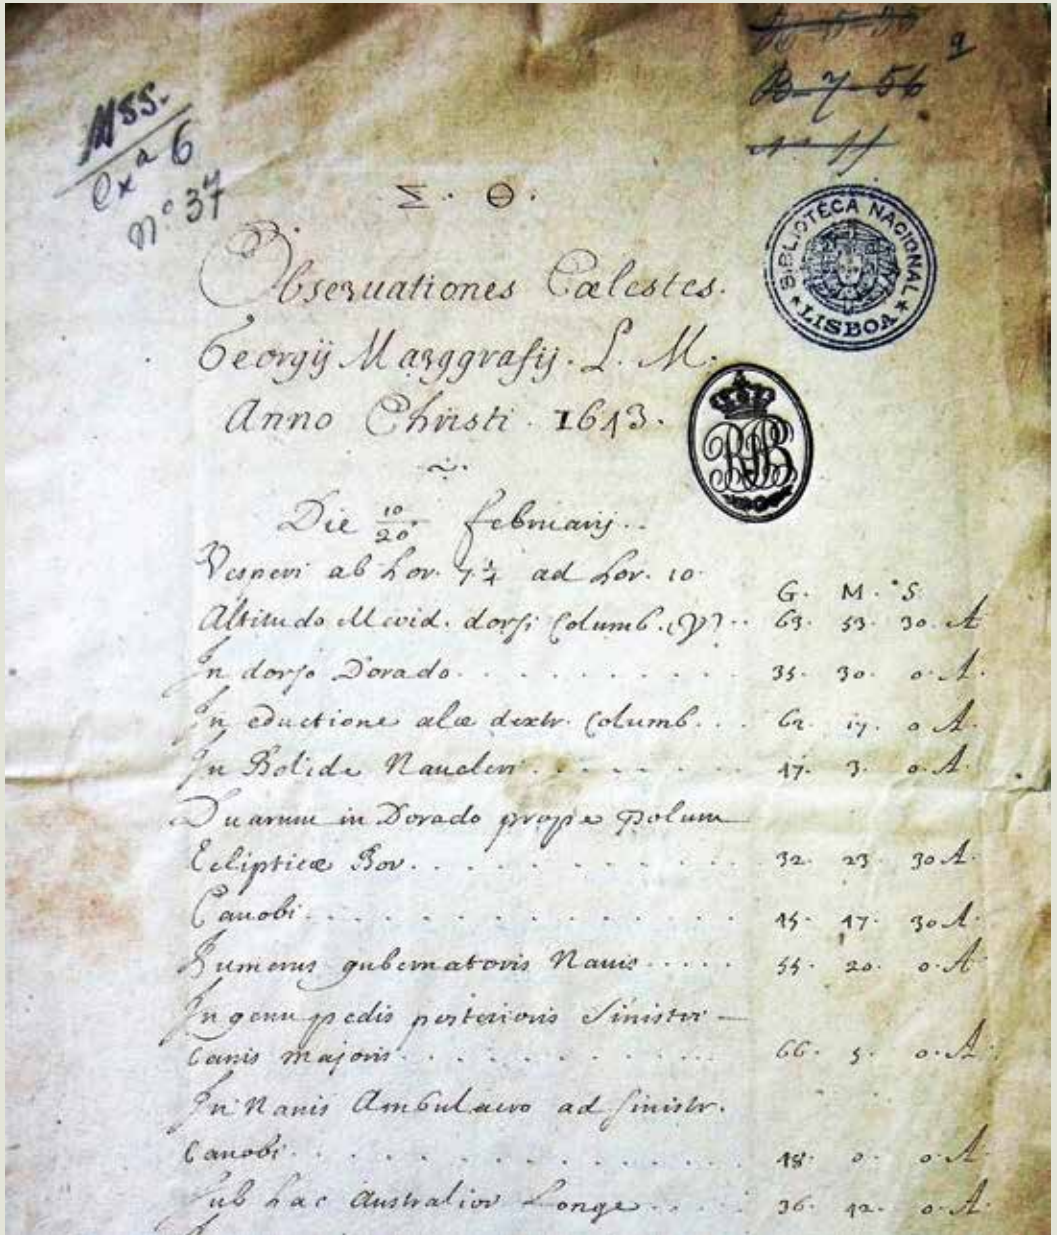 B-7-56
9
Mss.
Cxª 6
nº 37
Σ. Θ.
BIBLIOTECA NACIONAL
LISBOA
Observationes Cælestes.
Georgij Marggrafij. L. M.
Anno Christi. 1643.
Die 10/20 februarij..
Vesperi ab hor. 7 1/4 ad hor. 10.
G. M. S.
Altitudo Merid. dorsi Columb. 63. 53. 30. A
In dorso Dorado. 35. 30. 0. A.
In eductione alæ dextr. Columb. 62. 17. 0 A.
In Bolide Naucleri 47. 3. 0. A.
Duarum in Dorado prope Polum
Eclipticæ Bor. 32. 23. 30 A.
Canobi. 45. 47. 30 A.
Humerus gubernatoris Navis 55. 20. 0. A
In genu pedis posterioris sinistri
Canis majoris. 66. 5. 0. A
In Navis Ambulacro ad sinistr.
Canobi. 48. 0. 0. A
Sub hac Australior Longe 36. 42. 0. A.